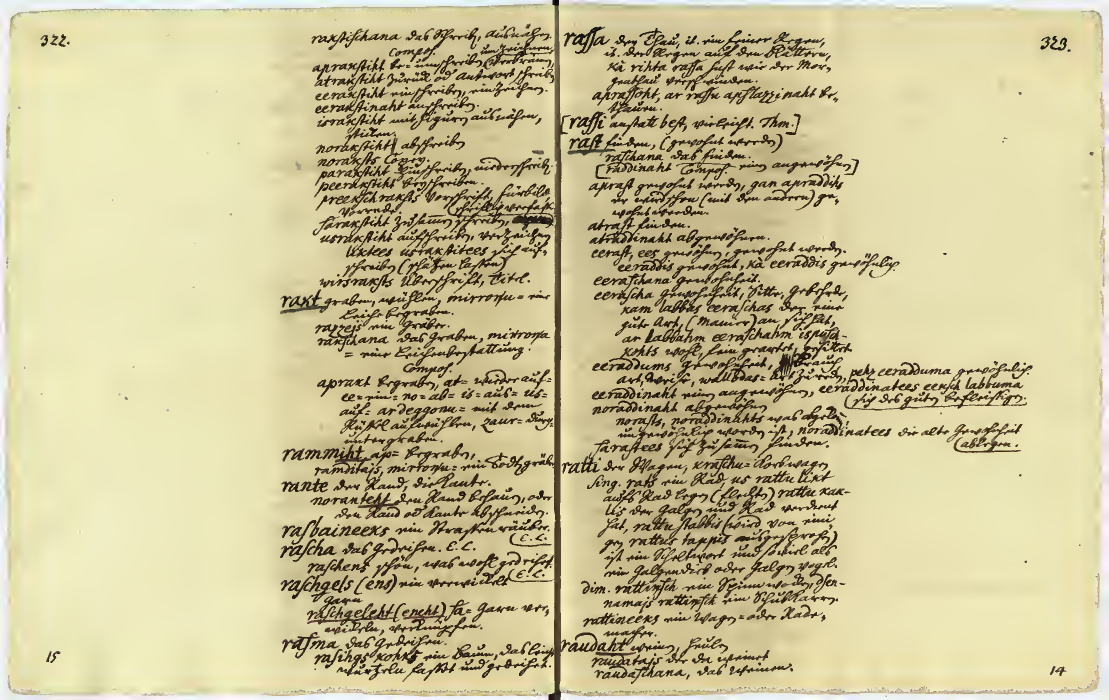 322.
rakstischana das Schreib, ausnähen
Compos. umzeichnen,
aprakstiht be= umschreiben (verbräm,
atrakstiht zurück od antwort schreib
eerakstiht einschreiben, einzeichen.
eerakstinaht anschreiben.
israkstiht mit figuren ausnähen,
norakstiht abschreiben
noraksts Copey.
parakstiht niederschreib.
peerakstiht beyschreiben.
preekschraksts Vorschrift, fürbild
Vorrede.
sarakstiht zusamen schreiben,
usrakstiht aufschreiben, verzeichen
liktees usrakstitees sich auf=
schreiben (schätzen lassen)
wirsraksts Überschrift, Titel.
rakt graben, wühlen, mirronu = eine
Leiche begraben.
razzejs ein Gräber.
rakschana das Graben, mirronu
= eine Leichenbestattung.
Compos.
aprakt begraben, at= wieder auf=
ee= ein= no= ab= is= aus= us=
auf= ar deggonu= mit dem
Rüssel aufwühlen, zaur= durch
untergraben.
rammiht, ap= begraben,
ramditajs, mirronu= ein Todtengräber
rante der Rand, die Kante.
noranteht den Rand behauen, oder
den Rand od Kante abschneiden.
rasbaineeks ein Strassen räuber.
(E. C.
rascha das Gedeihen. E. C.
raschens schön, was wohl gedeihet.
(E. C.
raschgels (ens) ein verwickelt
Garn
raschgeleht (eneht) sa= Garn ver,
wickeln, verknüpfen.
rasma das Gedeihen.
rasihgs kohks ein Baum, das
wurzeln fasst und gedeihet.
15
323.
rassa der Thau, it. ein feiner Regen,
it. der Regen auf den Blättern,
kà rihta rassa fast wie der Mor=
genthau verschwinden.
aprassoht, ar rassu apslazzinaht be=
thauen.
[rassi anstatt best, vieleicht. Thm.]
rast finden, (gewohnt werden)
raschana das finden.
[raddinaht Compos. einen angewöhnen]
aprast gewohnt werden, gan apraddihs
er wird schon (mit den andern) ge=
wohnt werden.
atrast finden.
atraddinaht abgewöhnen.
eerast, ees gewöhnen, gewohnt werden.
eeraddis gewohnt, kà eeraddis gewöhnlich.
eeraschana gewohnheit.
eerascha gewohnheit, Sitte, Gebehrde,
kam labbas eeraschas der eine
gute Art, (Manier) an sich hat,
ar labbahm eeraschahm
wohl, fein geartet, gesittet
eeraddums gewohnheit, Gebrauch
art, Weise, pehz eeradduma gewöhnlich
eeraddinaht einen angewöhnen, eeraddinatees eeksch labbuma
(sich des guten befleissigen.
noraddinaht abgewöhnen
norasts, noraddinahts was abgeko=
ungewöhnlich worden ist, noraddinatees die alte Gewohnheit
(ablegen.
sarastees sich zusamen finden.
ratti der Wagen, kraschu= Korbwagen
sing. rats ein Rad, us rattu likt
aufs Rad legen (flechten) rattu kak=
lis der Galgen und Rad verdient
hat, rattu stabbis (wird von eini
gen rattus tappis ausgesprochen)
ist ein Scheltwort und soviel als
ein Galgendieb oder Galgen vogel.
dim. rattinsch ein Spinn wocken, dsen=
namajs rattinsch ein Schubkarren.
rattineeks ein Wagen= oder Rade,
macher.
raudaht weinen, heulen
raudatajs der da weinet
raudaschana, das weinen.
14